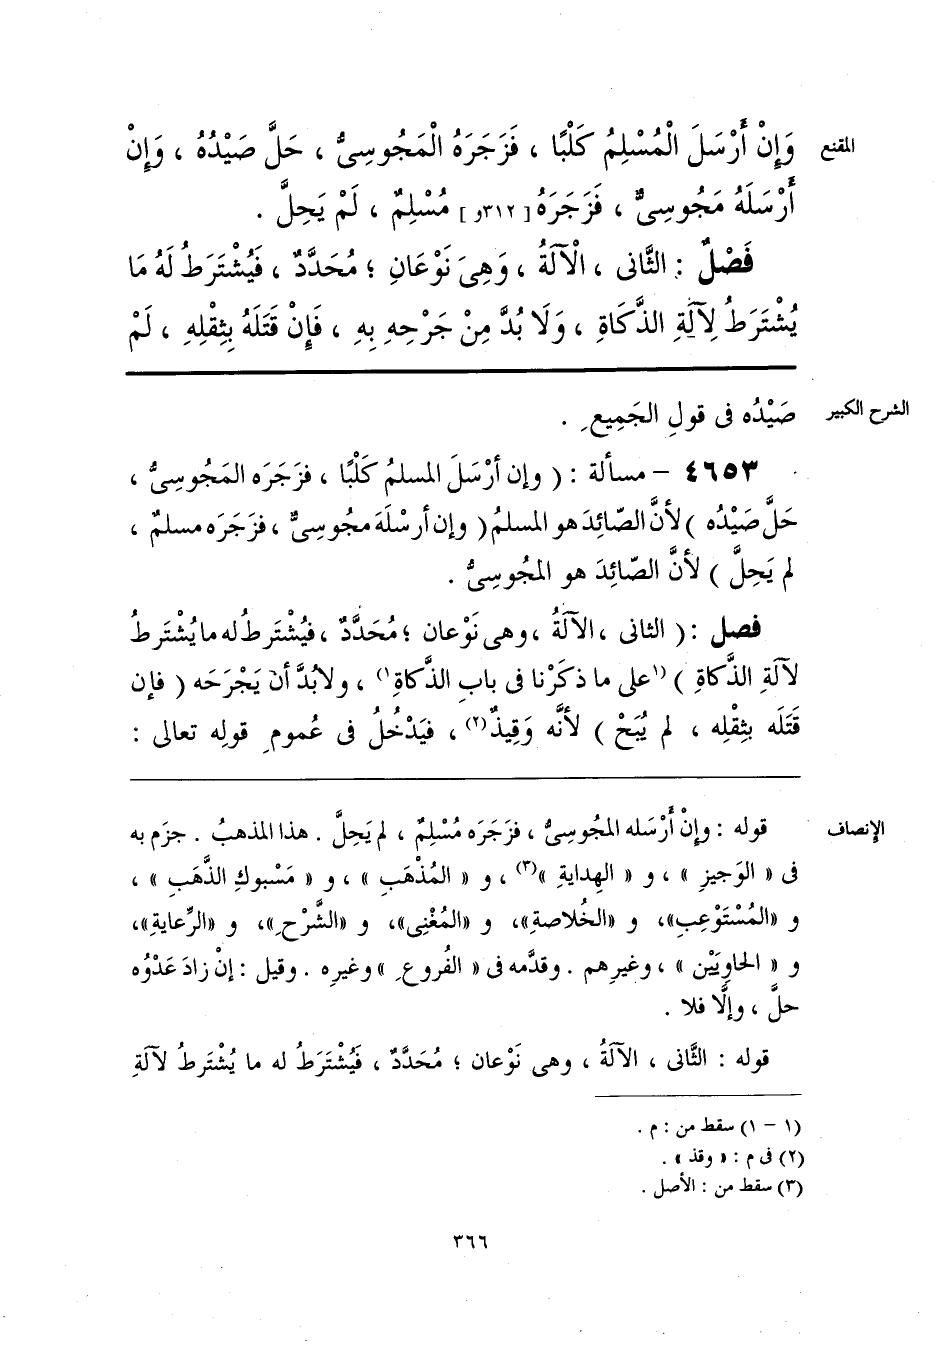 المقنع
وَإِنْ أَرْسَلَ الْمُسْلِمُ كَلْبًا ، فَزَجَرَهُ الْمَجُوسِىُّ ، حَلَّ صَيْدُهُ ، وَإِنْ
أَرْسَلَهُ مَجُوسِىٌّ ، فَزَجَرَهُ [ ٣١٢و ] مُسْلِمٌ ، لَمْ يَحِلَّ .
فَصْلٌ : الثَّانِى ، الْآلَةُ ، وَهِىَ نَوْعَانِ ؛ مُحَدَّدٌ ، فَيُشْتَرَطُ لَهُ مَا
يُشْتَرَطُ لِآلَةِ الذَّكَاةِ ، وَلَا بُدَّ مِنْ جَرْحِهِ بِهِ ، فَإِنْ قَتَلَهُ بِثِقْلِهِ ، لَمْ
الشرح الكبير
صَيْدُه فى قولِ الجَمِيعِ .
٤٦٥٣ – مسألة : ( وإن أرْسَلَ المسلمُ كَلْبًا ، فزَجَرَه المَجُوسِىُّ ،
حَلَّ صَيْدُه ) لأنَّ الصّائِدَ هو المسلمُ ( وإن أرسْلَه مجُوسِىٌّ ، فزَجَرَه مسلمٌ ،
لم يَحِلَّ ) لأنَّ الصّائِدَ هو المجُوسِىُّ .
فصل : ( الثانى ، الآلَةُ ، وهى نَوْعان ؛ مُحَدَّدٌ ، فيُشْتَرطُ له ما يُشْتَرطُ
لآلَةِ الذَّكاةِ ) (١على ما ذكَرْنا فى بابِ الذَّكاةِ١) ، ولابُدَّ أن يَجْرَحَه ( فإن
قَتَلَه بثِقْلِه ، لم يُبَحْ ) لأنَّه وَقِيذٌ(٢) ، فيَدْخُلُ فى عُمومِ قولِه تعالى :
الإنصاف
قوله : وإنْ أَرْسَله المجُوسِىُّ ، فزَجَرَه مُسْلِمٌ ، لم يَحِلَّ . هذا المذهبُ . جزَم به
فى « الوَجيزِ » ، و « الهِدايةِ »(٣) ، و « المُذْهَبِ » ، و « مَسْبوكِ الذَّهَبِ » ،
و «المُسْتَوْعِبِ»، و «الخُلاصةِ»، و «المُغْنِى»، و «الشَّرْحِ»، و «الرِّعايةِ»،
و « الحاوِيَيْن » ، وغيرِهم . وقدَّمه فى « الفُروعِ » وغيرِه . وقيل : إنْ زادَ عَدْوُه
حلَّ ، وإلَّا فلا .
قوله : الثَّانى ، الآلَةُ ، وهى نَوْعان ؛ مُحَدَّدٌ ، فَيُشْتَرَطُ له ما يُشْتَرطُ لآلَةِ
(١ – ١) سقط من : م .
(٢) فى م : « وقذ » .
(٣) سقط من : الأصل .
٣٦٦